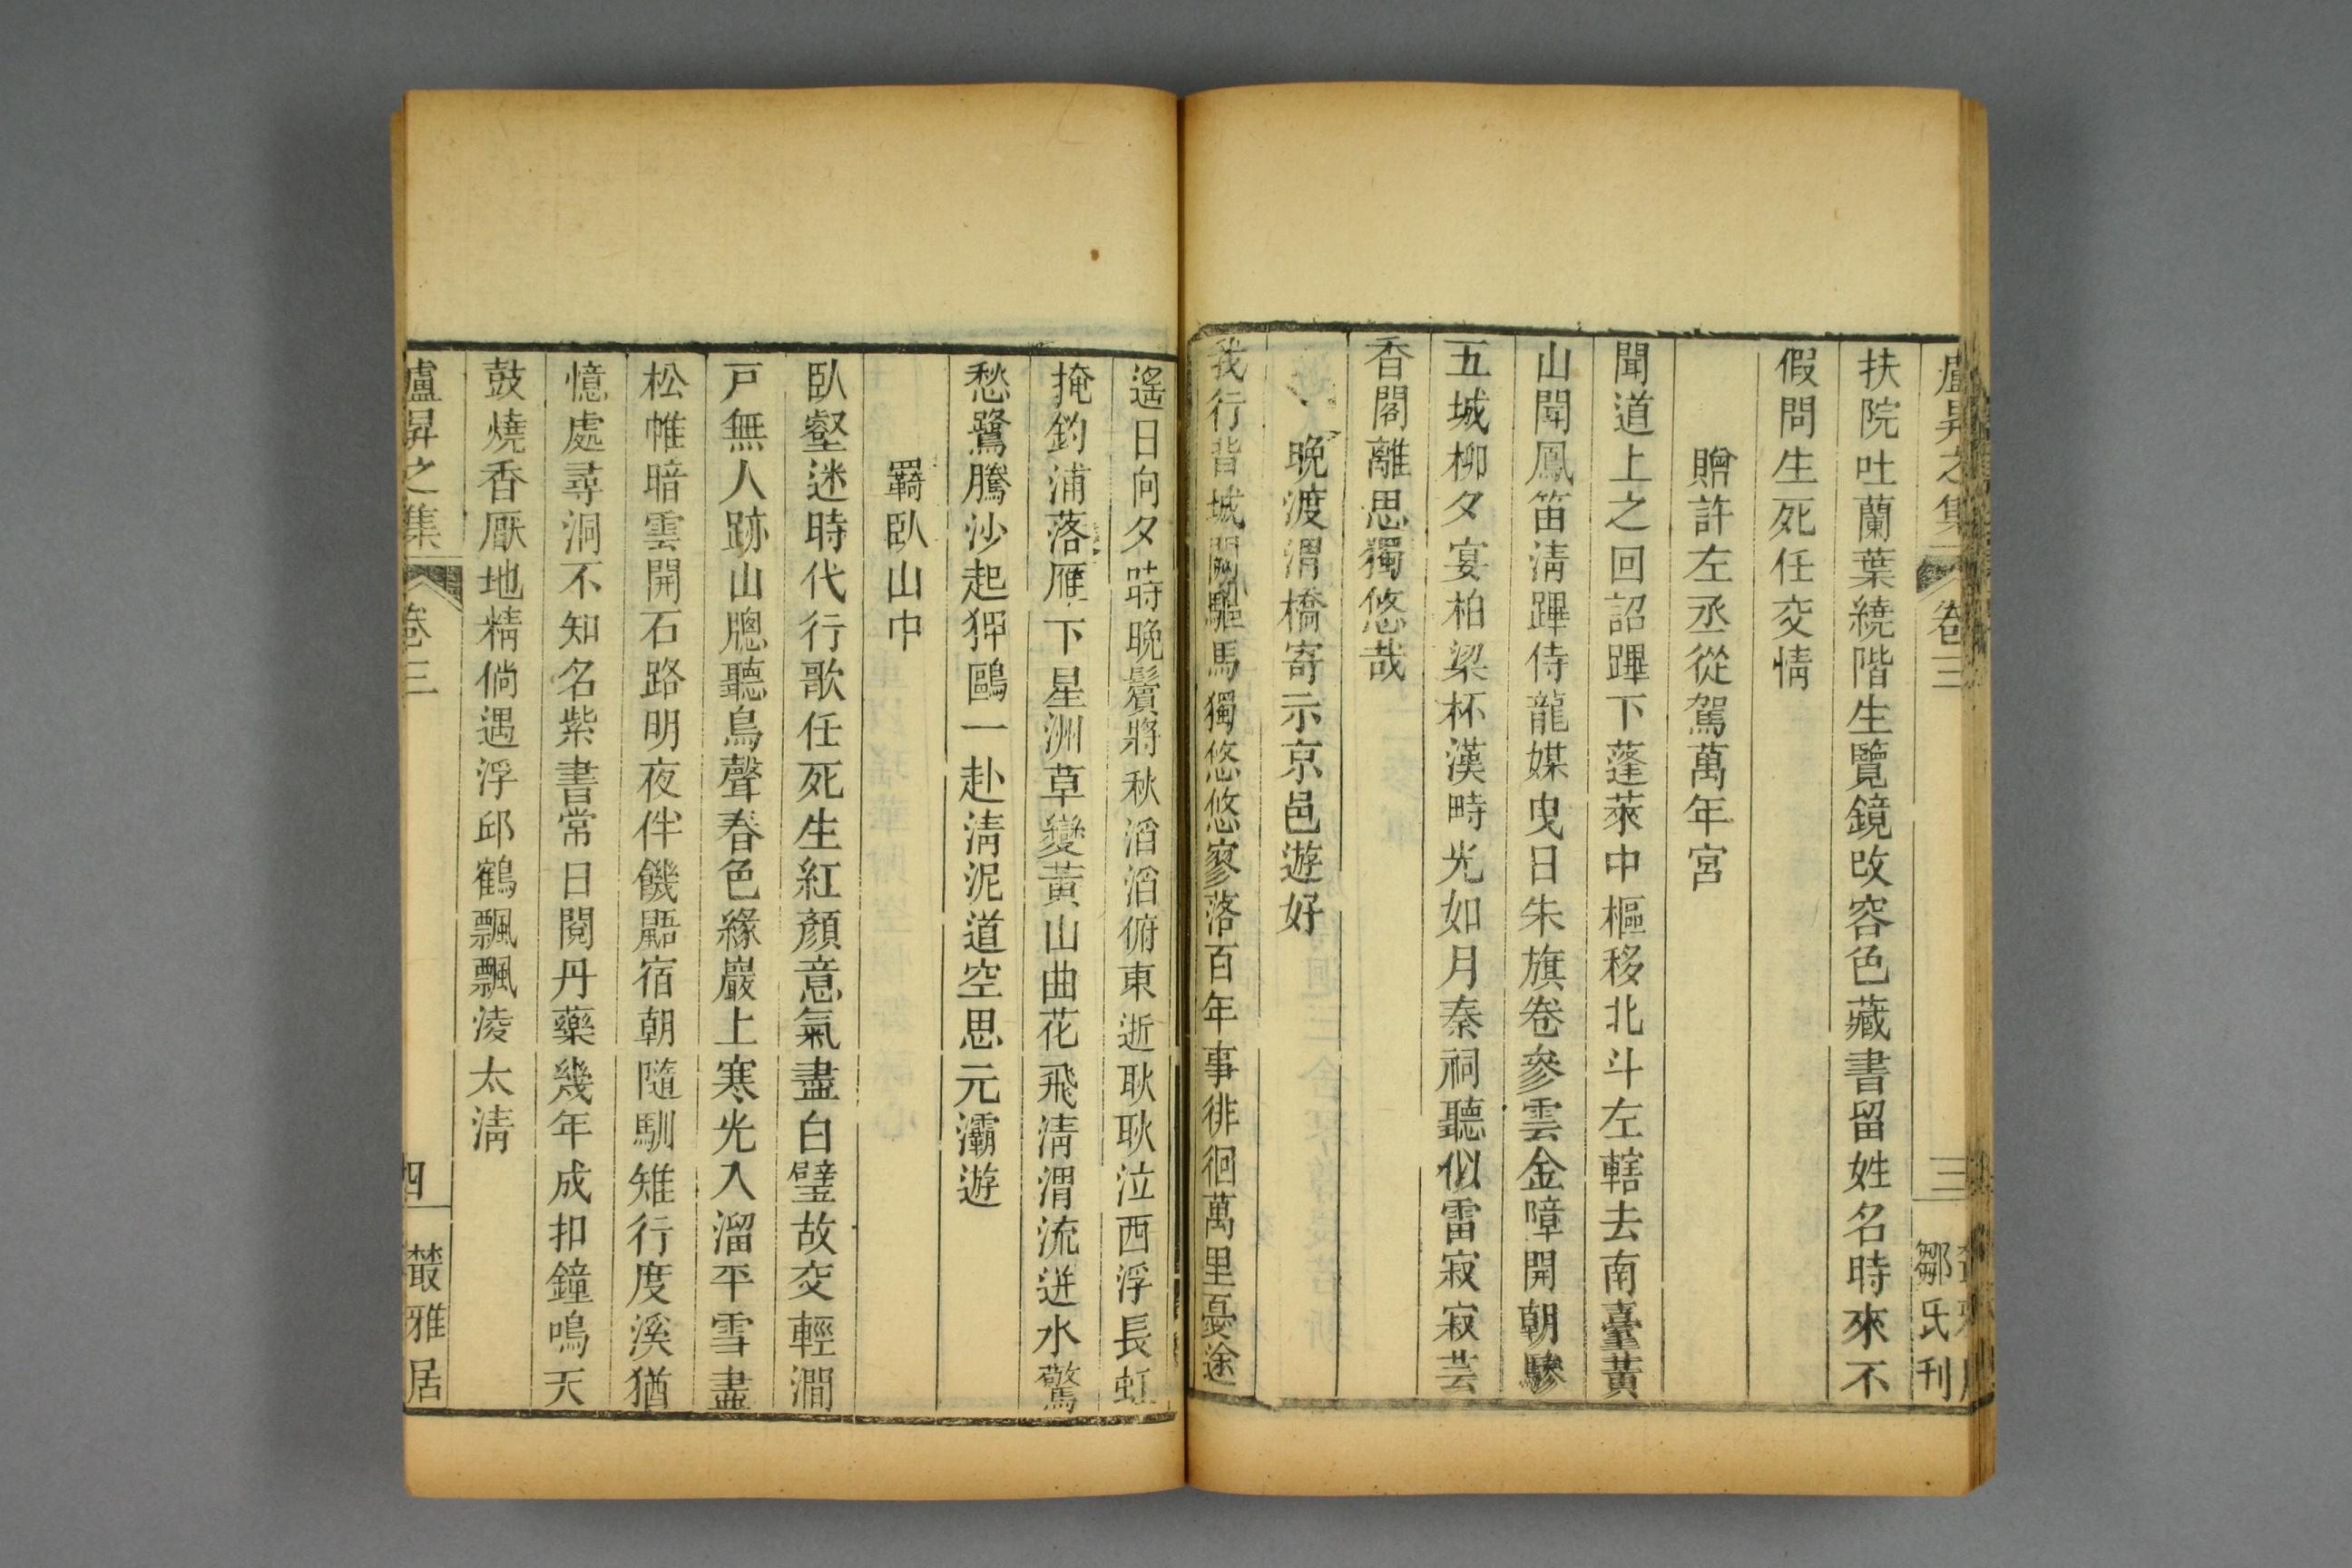 盧昇之集 卷三 三 鄒氏刊
扶院吐蘭葉繞階生覽鏡改容色藏書留姓名時來不
假問生死任交情
贈許左丞從駕萬年宮
聞道上之回詔蹕下蓬萊中樞移北斗左轄去南臺黃
山聞鳳笛淸蹕侍龍媒曳日朱旗卷參雲金障開朝驂
五城柳夕宴柏梁杯漢畤光如月秦祠聽似雷寂寂芸
香閣離思獨悠哉
晩渡渭橋寄示京邑遊好
我行背城闕驅馬獨悠悠寥落百年事徘徊萬里憂途
遙日向夕時晩鬢將秋滔滔俯東逝耿耿泣西浮長虹
掩釣浦落雁下星洲草變黃山曲花飛淸渭流迸水驚
愁鷺騰沙起狎鷗一赴淸泥道空思元灞遊
羈臥山中
臥壑迷時代行歌任死生紅顏意氣盡白璧故交輕澗
戸無人跡山牕聽鳥聲春色緣巖上寒光入溜平雪盡
松帷暗雲開石路明夜伴饑鼯宿朝隨馴雉行度溪猶
憶處尋洞不知名紫書常日閱丹藥幾年成扣鐘鳴天
鼓燒香厭地精倘遇浮邱鶴飄飄淩太淸
盧昇之集 卷三 四 叢雅居